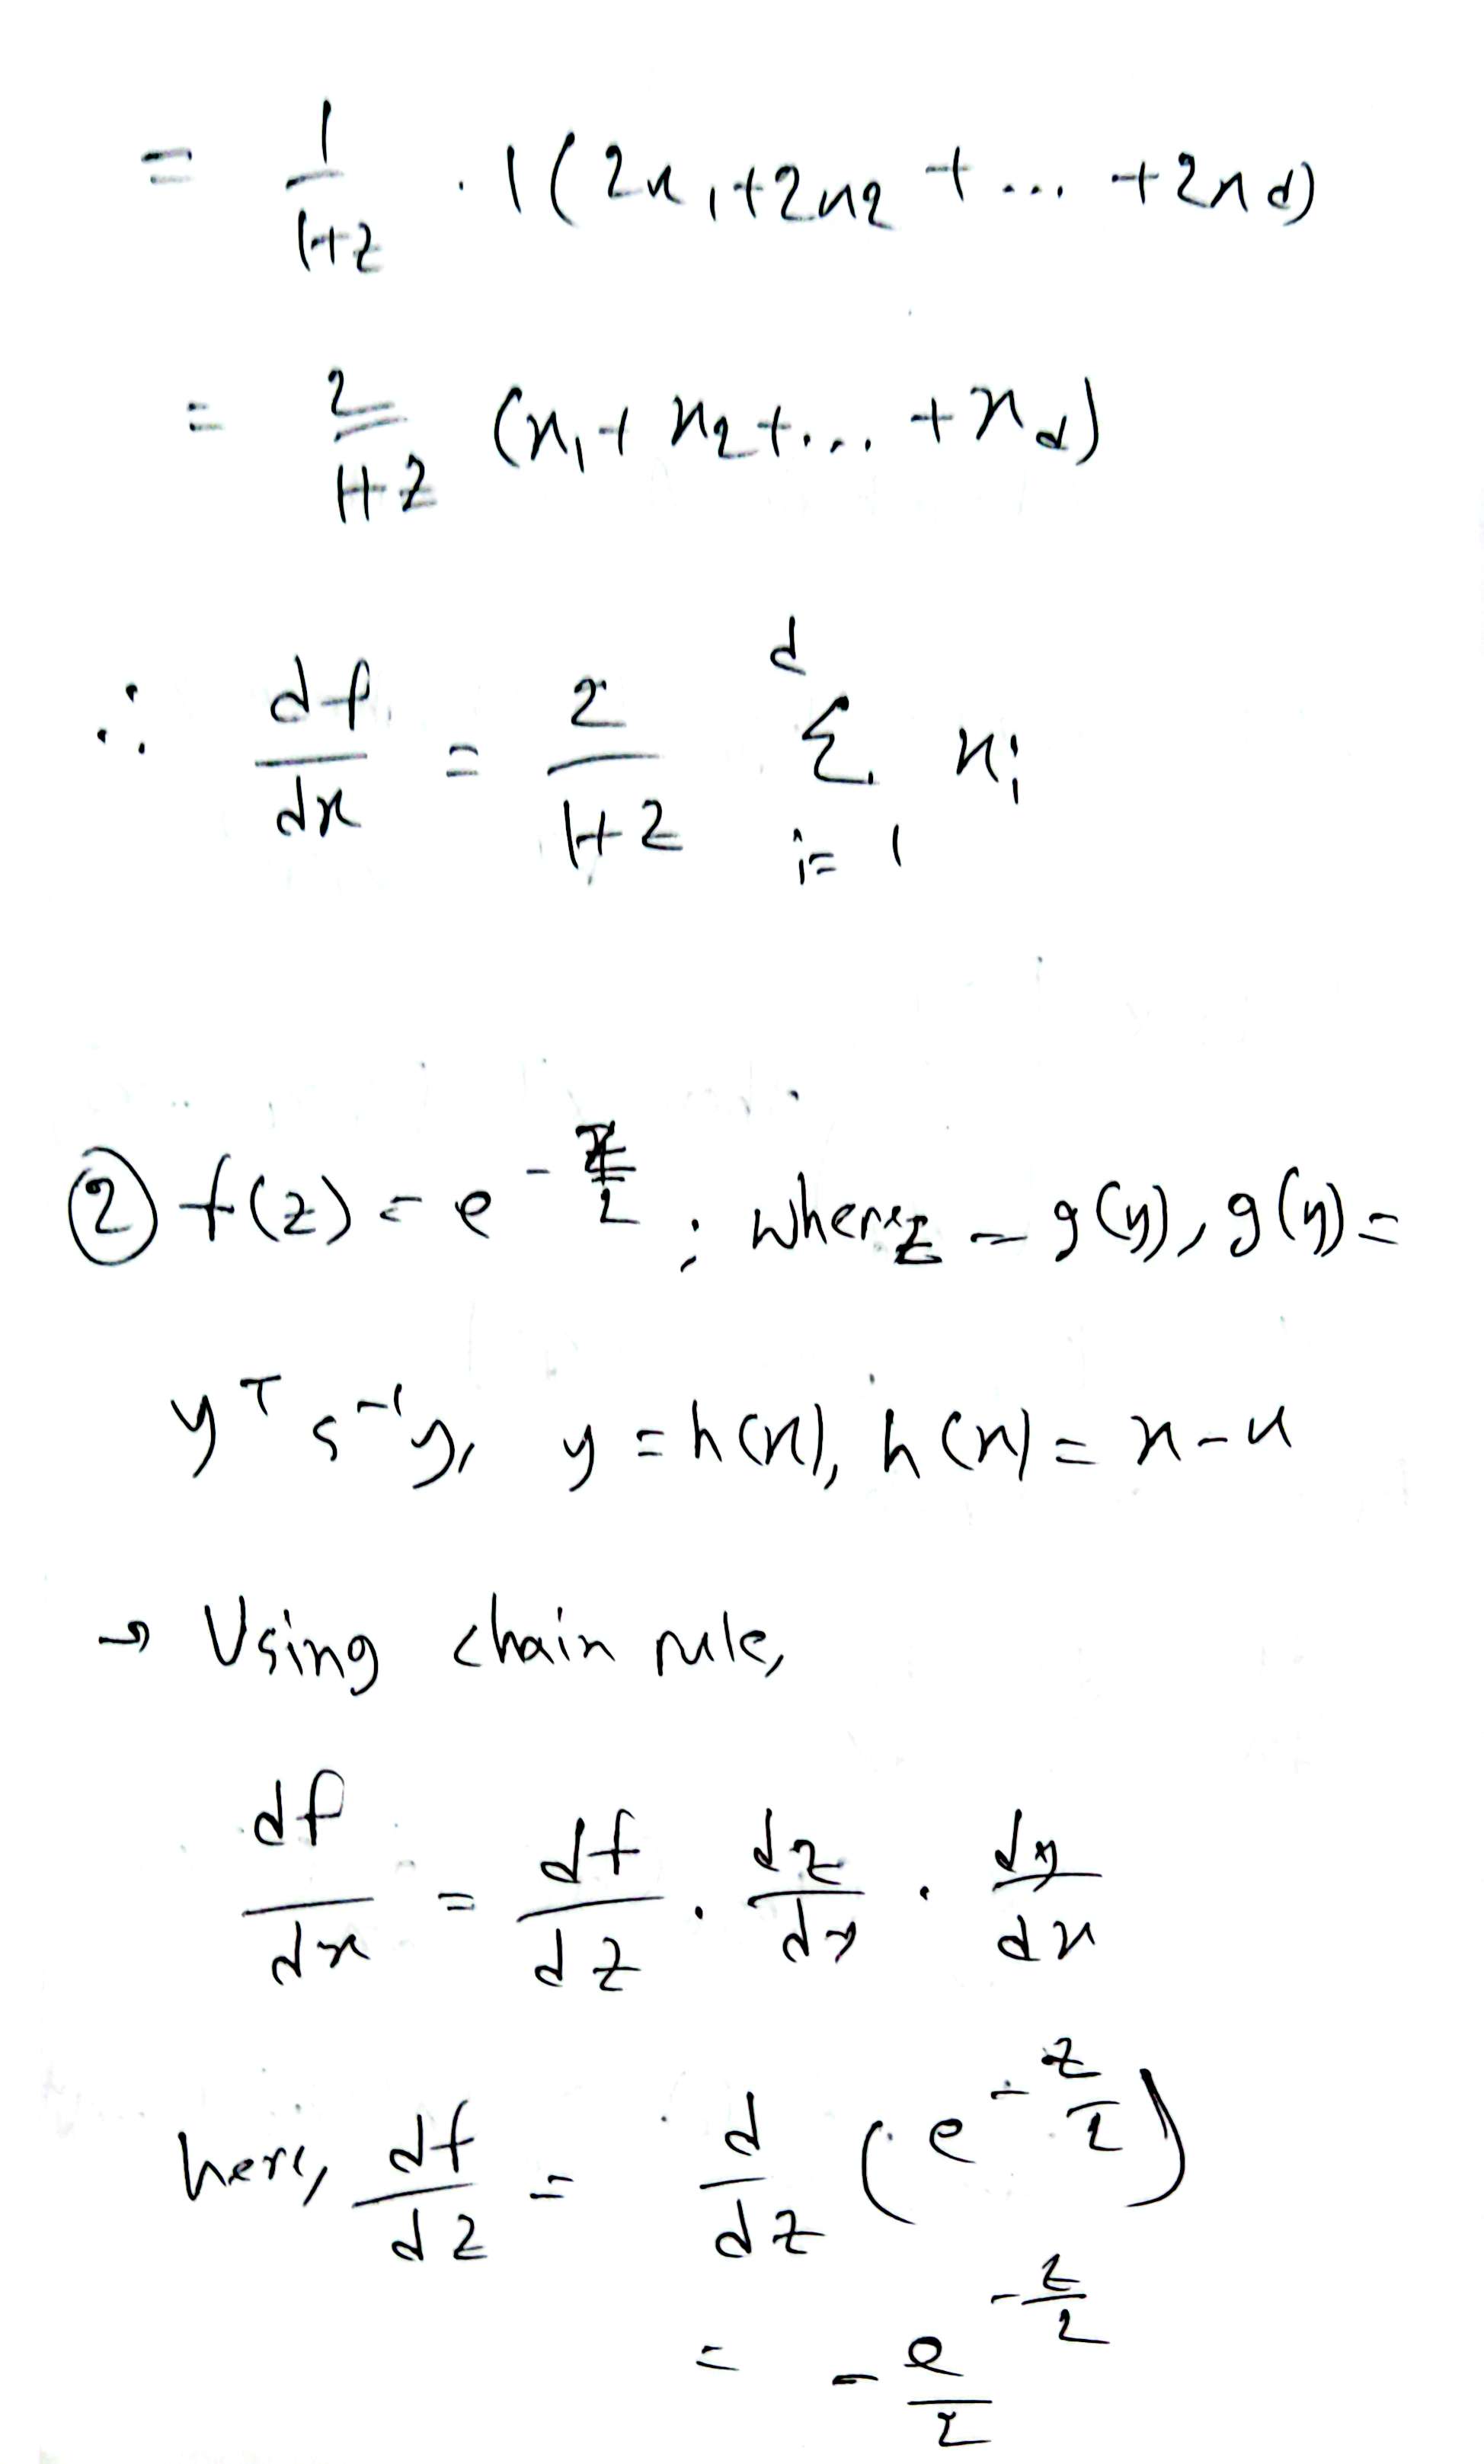 = 1/(1+z) . 1(2x₁+2x₂ + ... +2x_d)
= 2/(1+z) (x₁+ x₂+... +x_d)
∴ df/dx = 2/(1+z) Σ_{i=1}^{d} x_i
② f(z) = e^{-z/2} ; where z = g(y), g(y) =
y^T s^{-1} y, y = h(x), h(x) = x-u
→ Using chain rule,
df/dx = df/dz . dz/dy . dy/dx
here, df/dz = d/dz (e^{-z/2})
= - e^{-z/2}/2